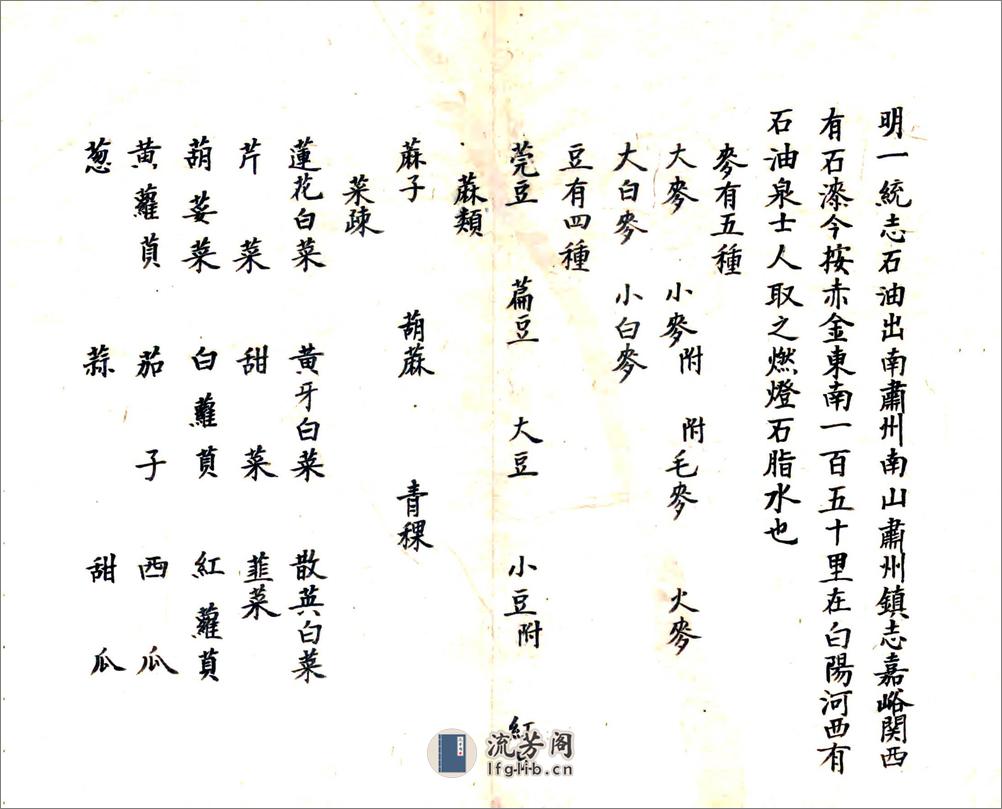 明一統志石油出南肅州南山肅州鎮志嘉峪関西
有石漆今按赤金東南一百五十里在白陽河西有
石油泉士人取之燃燈石脂水也
麥有五種
大麥 小麥附 附毛麥 火麥
大白麥 小白麥
豆有四種
莞豆 萹豆 大豆 小豆附 紅
蔴類
蔴子 葫蔴 青稞
菜疎
蓮花白菜 黃牙白菜 散英白菜
芹菜 甜菜 韮菜
葫荽菜 白蘿蔔 紅蘿蔔
黃蘿蔔 茄子 西瓜
葱 蒜 甜瓜
流芳阁
lfglib.cn